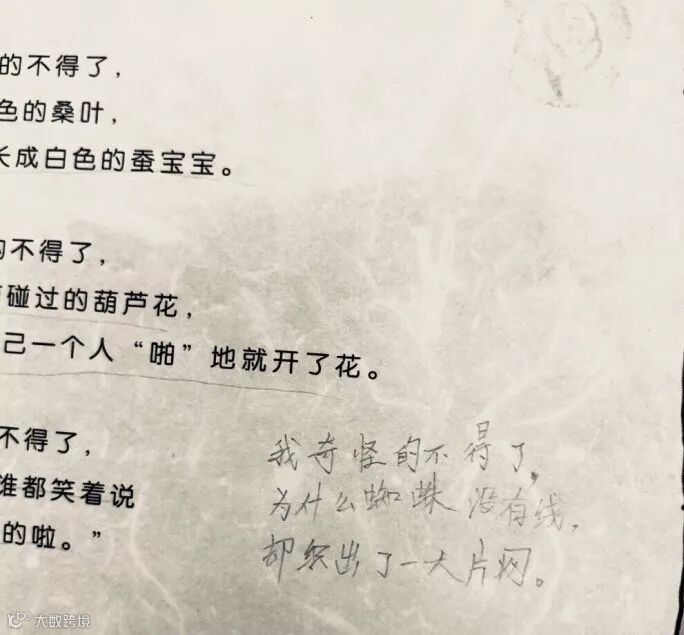 的不得了，
色的桑叶，
长成白色的蚕宝宝。
的不得了，
碰过的葫芦花，
己一个人“啪”地就开了花。
不得了，
谁都笑着说
的啦。”
我奇怪的不得了，
为什么蜘蛛没有线，
却织出了一大片网。
大数跨境